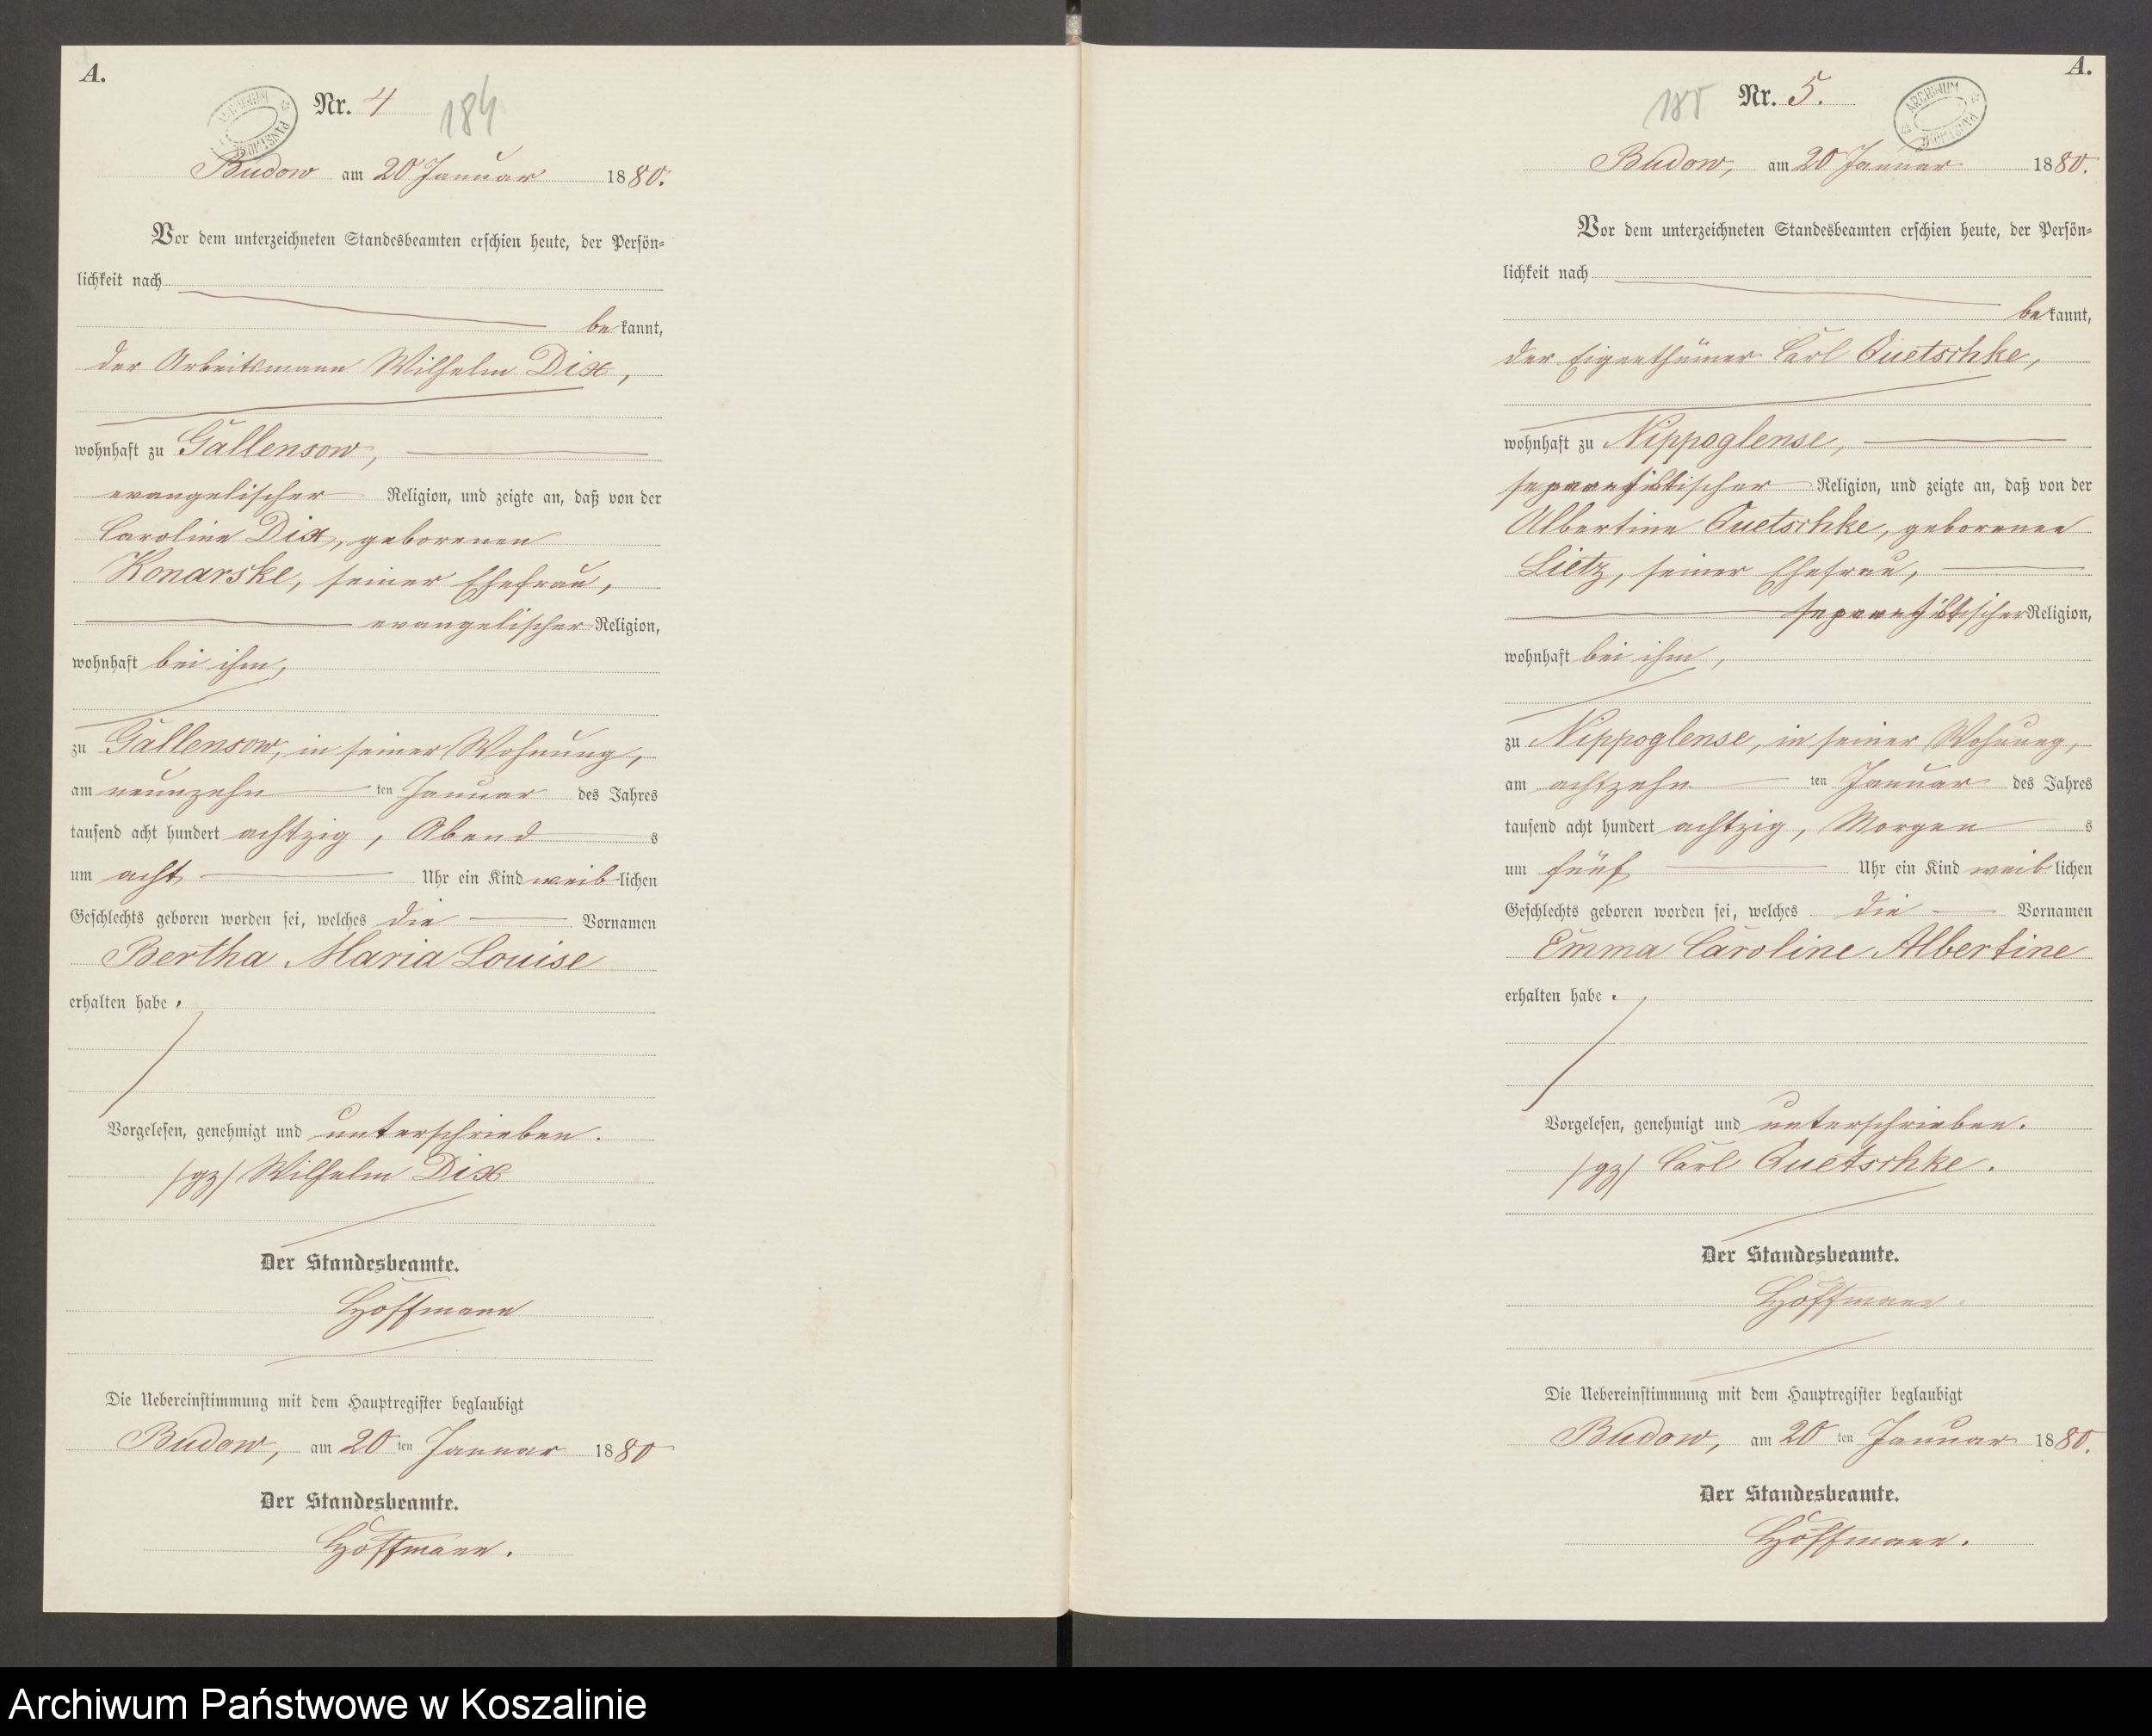 A.
Nr. 4
184
ARCHIWUM PAŃSTWOWE
Budow am 20 Januar 1880.
Vor dem unterzeichneten Standesbeamten erschien heute, der Persön-
lichkeit nach
bekannt,
der Arbeitsmann Wilhelm Dix,
wohnhaft zu Gallensow,
evangelischer Religion, und zeigte an, daß von der
Caroline Dix, geborenen
Konarske, seiner Ehefrau,
evangelischer Religion,
wohnhaft bei ihm,
zu Gallensow, in seiner Wohnung,
am neunzehn ten Januar des Jahres
tausend acht hundert achtzig, Abend s
um acht Uhr ein Kind weiblichen
Geschlechts geboren worden sei, welches die Vornamen
Bertha Maria Louise
erhalten habe.
Vorgelesen, genehmigt und unterschrieben.
/gz/ Wilhelm Dix
Der Standesbeamte.
Hoffmann
Die Uebereinstimmung mit dem Hauptregister beglaubigt
Budow, am 20 ten Januar 1880
Der Standesbeamte.
Hoffmann.
A.
185
Nr. 5.
ARCHIWUM PAŃSTWOWE
Budow, am 20 Januar 1880.
Vor dem unterzeichneten Standesbeamten erschien heute, der Persön-
lichkeit nach
bekannt,
der Eigenthümer Carl Quetschke,
wohnhaft zu Nippoglense,
separatistischer Religion, und zeigte an, daß von der
Albertine Quetschke, geborenen
Lietz, seiner Ehefrau,
separatistischer Religion,
wohnhaft bei ihm,
zu Nippoglense, in seiner Wohnung,
am achtzehn ten Januar des Jahres
tausend acht hundert achtzig, Morgen s
um fünf Uhr ein Kind weiblichen
Geschlechts geboren worden sei, welches die Vornamen
Emma Caroline Albertine
erhalten habe.
Vorgelesen, genehmigt und unterschrieben.
/gz/ Carl Quetschke.
Der Standesbeamte.
Hoffmann.
Die Uebereinstimmung mit dem Hauptregister beglaubigt
Budow, am 20 ten Januar 1880.
Der Standesbeamte.
Hoffmann.
Archiwum Państwowe w Koszalinie